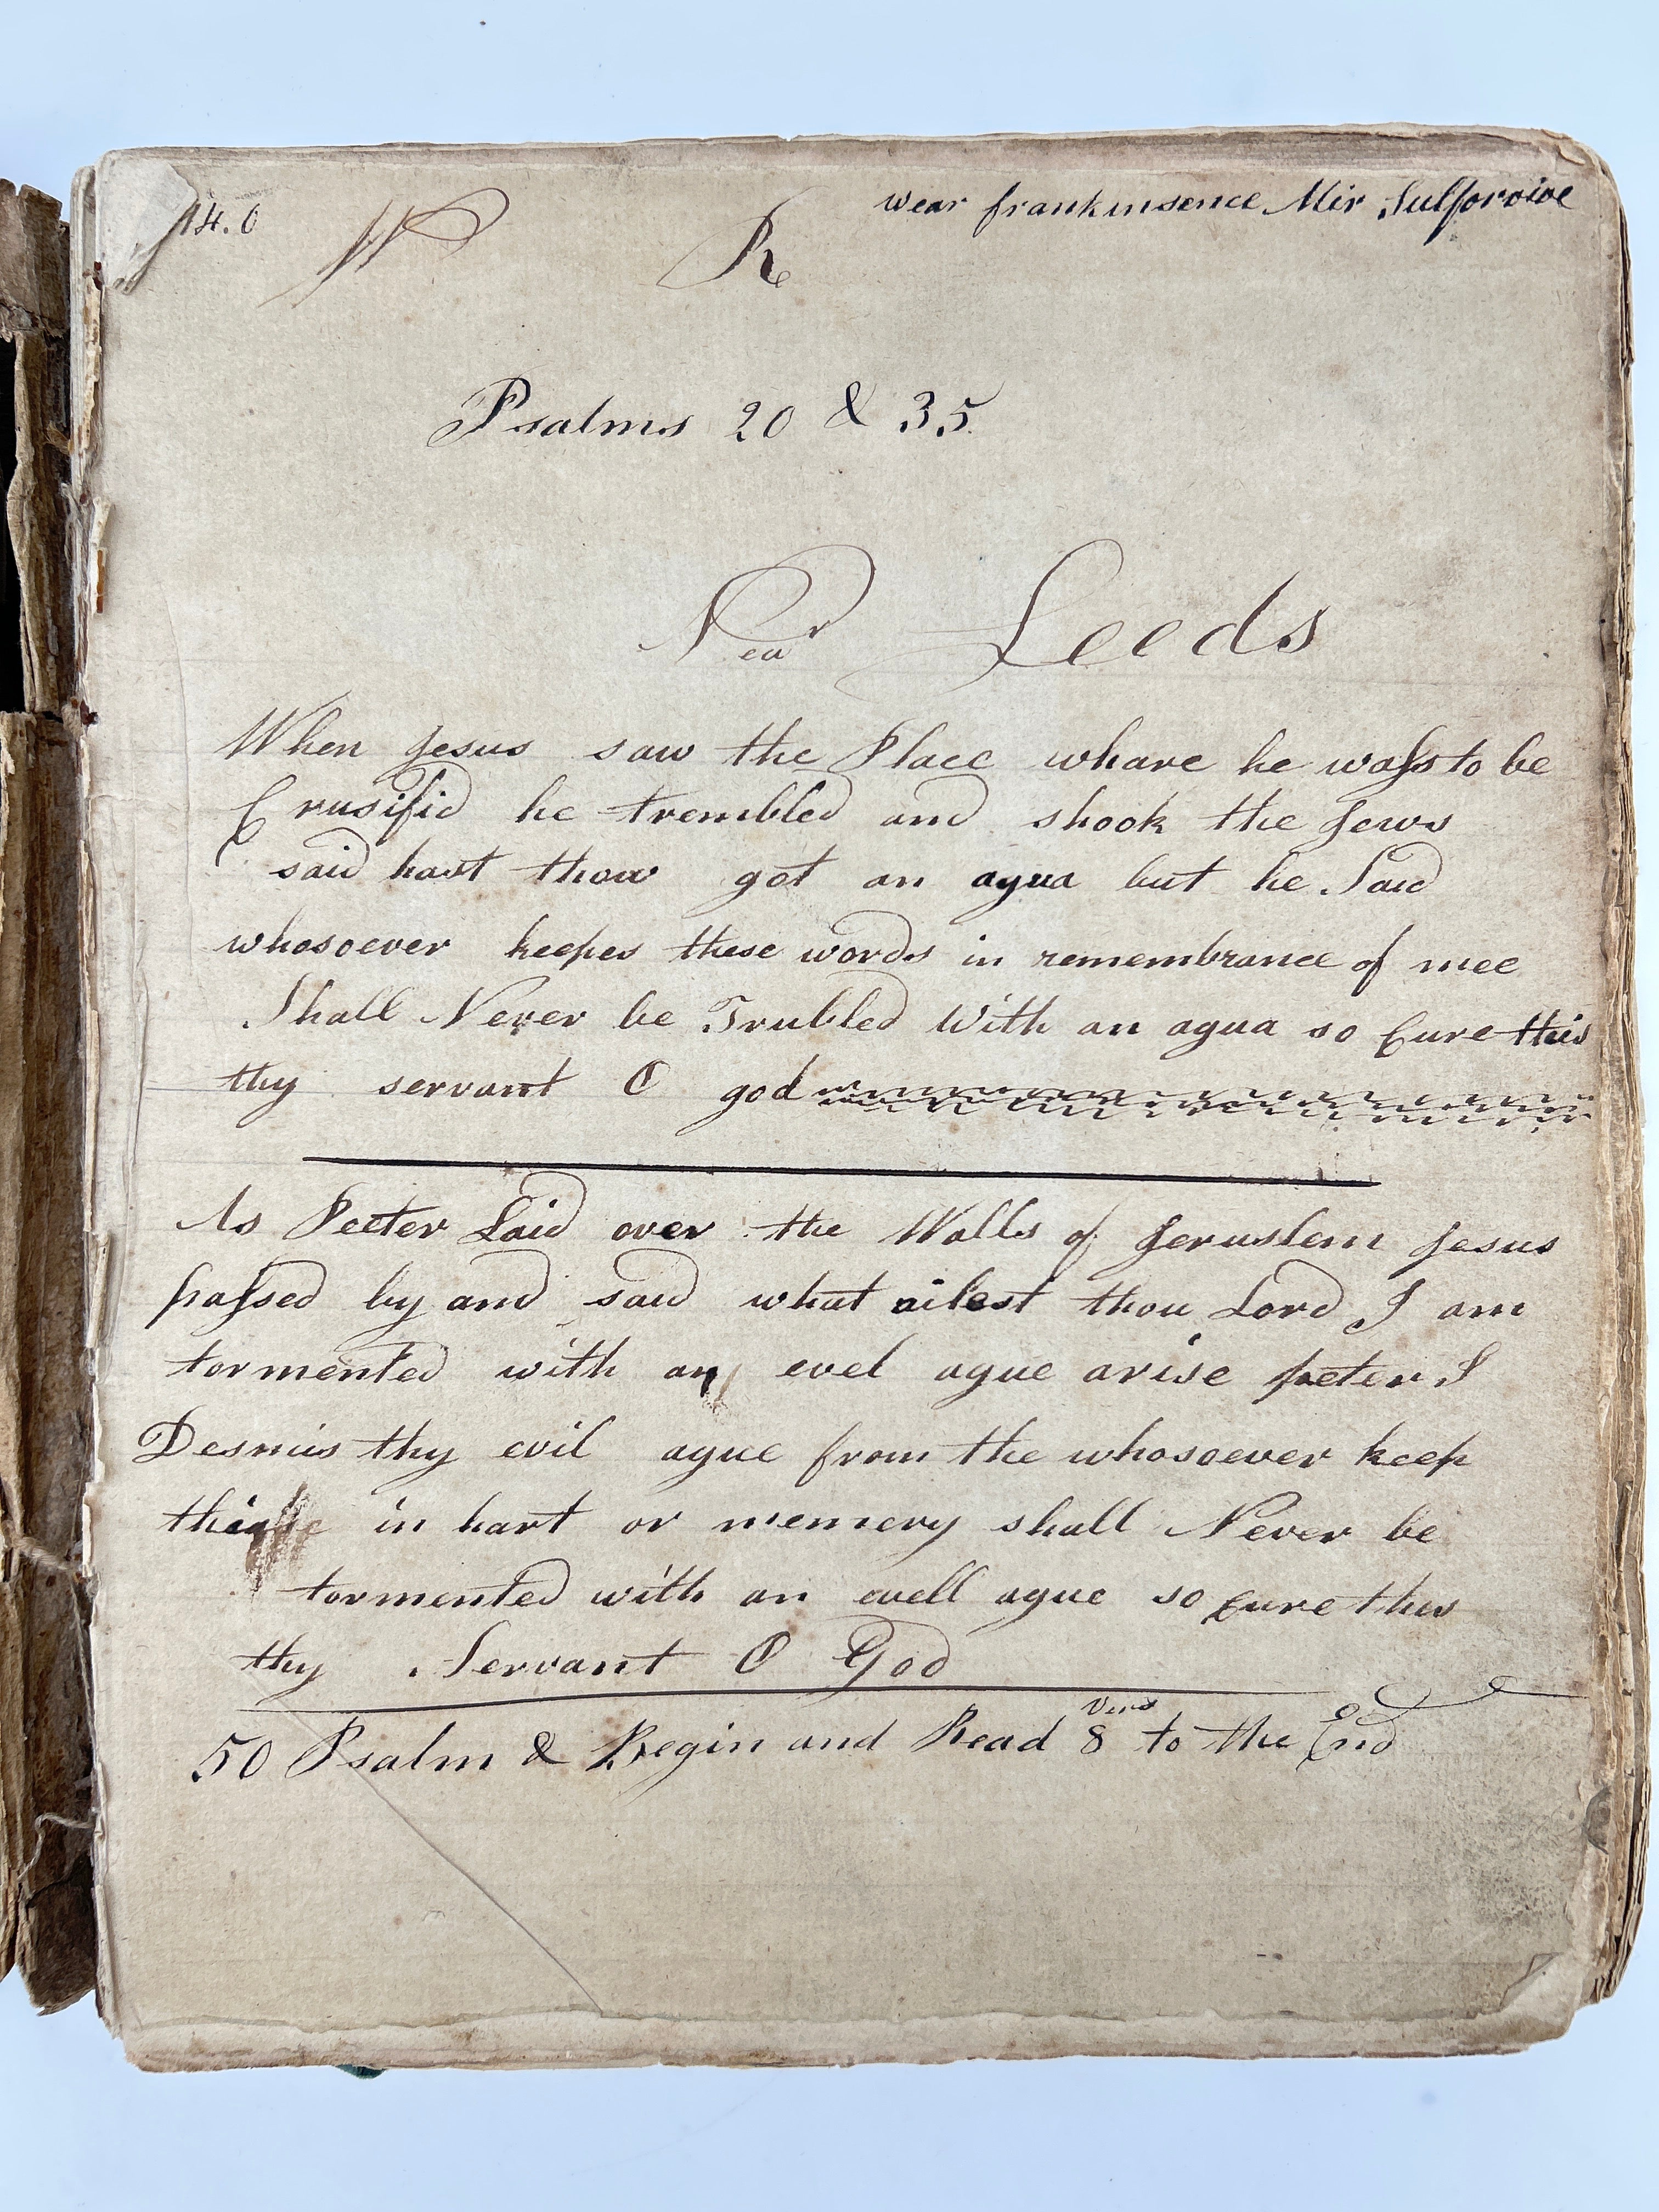 14.0
W R wear frankinsence Mir Sulforoive
Psalms 20 & 35
Near Leeds
When Jesus saw the Place whare he wass to be
Crusifid he trembled and shook the Jews
said hast thow got an agua but he Said
whosoever keepes these words in remembrance of mee
Shall Never be Trubled With an agua so Cure this
thy servant O god
As Peeter Laid over the Walls of Jeruslem Jesus
passed by and said what ailest thou Lord I am
tormented with an evel ague arise peter I
Desmis thy evil ague from the whosoever keep
in hart or memery shall Never be
tormented with an evell ague so Cure this
thy Servant O God
50 Psalm & Begin and Read 8 Vers to the End